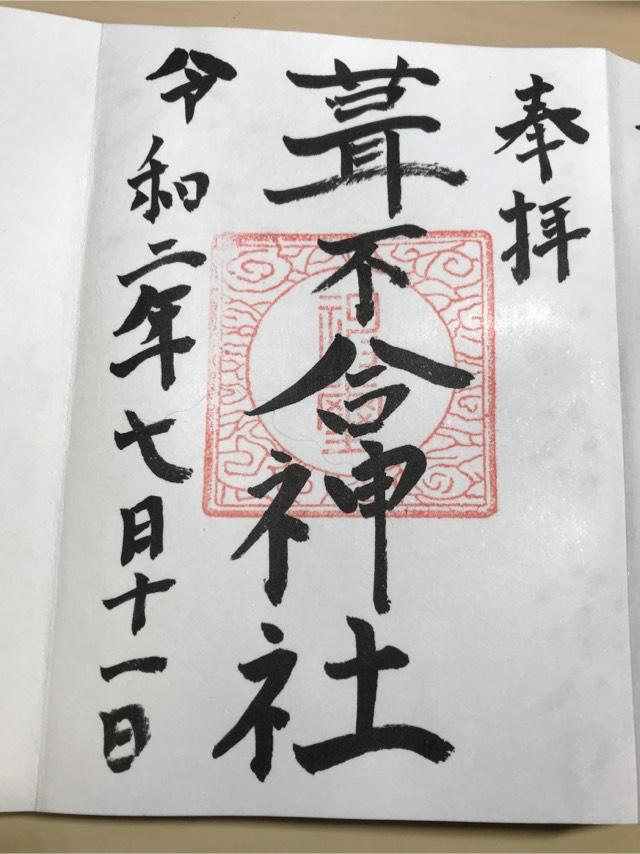 奉拝
葺不合神社
令和二年七月十一日